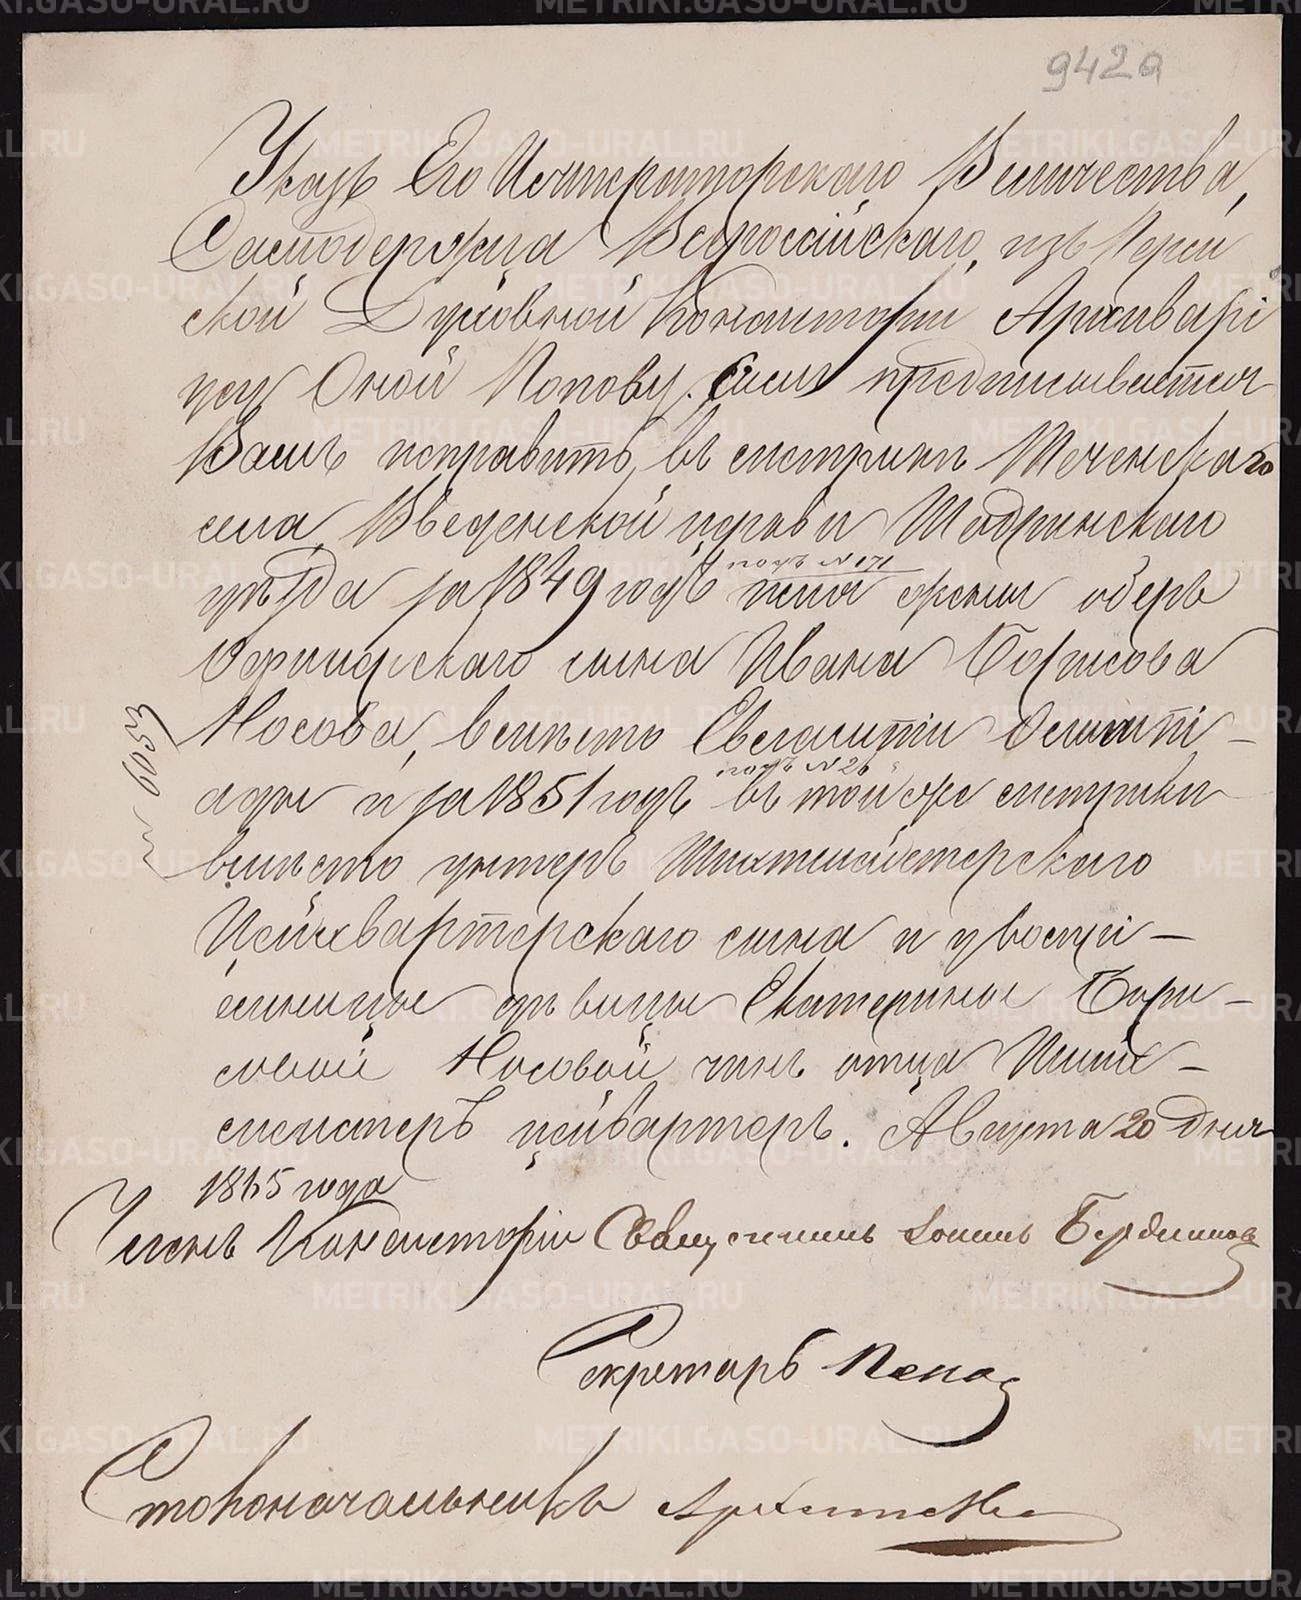 942а
Указъ Его Императорскаго Величества,
Самодержца Всероссійскаго, изъ Перм
ской Духовной Консисторіи Архиварі
усу Оной Попову. Симъ предписывается
Вамъ исправить, въ метрикѣ Теченскаго
села, Введенской церкви Шадринскаго
уѣзда за 1849 годъ подъ №171 имя жены оберъ
Офицерскаго сына Ивана Борисова
Носова, вмѣсто Евлампіи Олимпі-
ады и за 1851 годъ подъ №26 въ той же метрики
вмѣсто унтеръ Шихтмейстерскаго
Цейхвартерскаго сына и
дѣвицы Екатерины Бори-
совой Носовой чинъ отца Шихт-
мейстеръ цейвартеръ. Августа 20 дня
1865 года
№ 6053
Членъ Консисторіи Священникъ Іоаннъ Бердниковъ
Секретарь Попов
Столоначальникъ